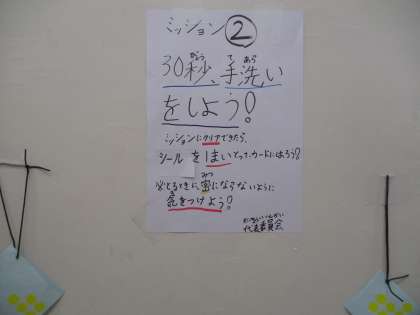 ミッション②
30秒、手洗い
をしよう!
ミッションにクリアできたら、
シールを1まいとって、カードにはろう!
※とるときに、密にならないように
気をつけよう!
代表委員会